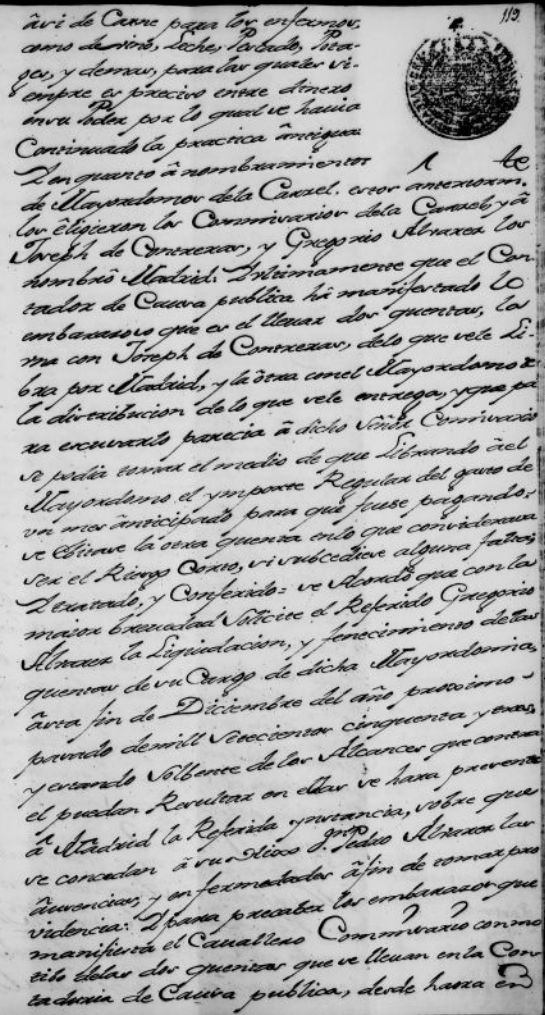 119.
asi de Carne para los enfermos,
como de vino, Leche, Pescado, Pota-
ges, y demas, para las quales si-
empre es preciso entre dinero
en su Poder por lo qual se havia
Continuado la practica antigua:
Y en quanto â nombramientos
de Mayordomos dela Carzel. estos anteriorm.te
los êligieron los Commisarios dela Carzel, y â
Joseph de Contreras, y Gregorio Alvarez los
nombrô Madrid: Y ultimamente que el Con-
tador de Causa publica hâ manifestado lo
embarazoso que es el llevar dos quentas, la
una con Joseph de Contreras, delo que sele Li-
bra por Madrid, y la ôtra con el Mayordomo de
la distribucion de lo que sele entrega, y que pa
ra escusarlo parecia â dicho Señor Comisario
se podia tomar el medio de que Librando âel
Mayordomo el ymporte Regular del gasto de
un mes ânticipado para que fuese pagando:
se êbitase la otra quenta enlo que considerava
ser el Riesgo Corto, si subcediese alguna falta;
Y tratado, y Conferido= se Acordô que con la
maior brevedad Solicite el Referido Gregorio
Alvarez la Liquidacion, y fenecimiento de las
quentas de su Cargo de dicha Mayordomia,
âsta fin de Diciembre del año proximo-
pasado demill Setecientos cinquenta y tres,
y estando Solbente de los Alcances que contra
el puedan Resultar en ellas se hara presente
â Madrid la Referida ynstancia, sobre que
se concedan â su Hijo Dn. Pedro Alvarez las
âusencias, y enfermedades âfin de tomar pro
videncia: Y para precaber los embarazos que
manifiesta el Cavallero Commisario con mo
tibo delas dos quentas que se llevan en la Con-
taduria de Causa publica, desde haora en